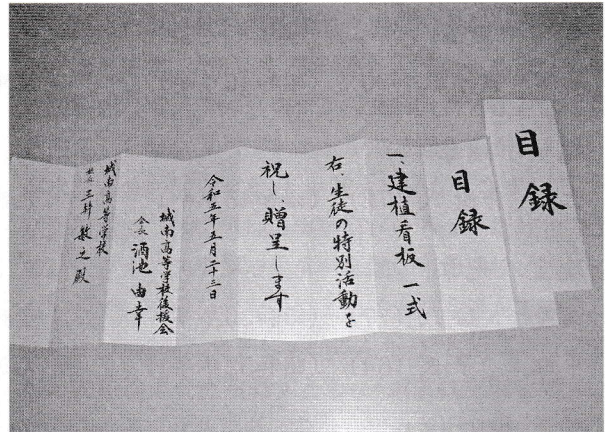 目録
目録
一、建植看板 一式
右、生徒の特別活動を
祝し、贈呈します
令和五年五月二十三日
城南高等学校後援会
会長 酒池 由幸
城南高等学校
校長 三井 敏之 殿